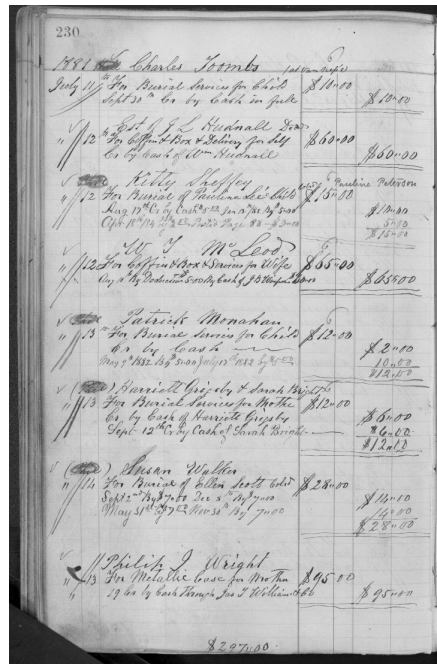 230
1881 Charles Toombs
July 11 For Burial Services for Child $10.00
Sept 30th Cr by Cash in full $10.00
" 12 Est of J L Hudnall Dr
For Coffin & Box & Delivery for Self $60.00
Cr by Cash of Wm Hudnall $60.00
Kitty Sheffey Pauline Peterson
" 12 For Burial of Pauline Lee Child $15.00
Aug 17th Cr by Cash 5.00 By 5.00 $10.00
Apr 18th/84 Page 88 - $3.00 5.00
$15.00
W T McLeod
" 12 For Coffin & Box & Services for Wife $65.00
Aug By Deduction 5.00 By Cash of J B $65.00
Patrick Monahan
" 13th For Burial Services for Child $12.00
Cr by Cash $2.00
May 9th 1882 By 5.00 July 1882 by 5.00 10.00
$12.00
Harriett Grigsby & Sarah Bright
" 13 For Burial Services for Mother $12.00
Cr, by Cash of Harriett Grigsby $6.00
Sept 12th Cr by Cash of Sarah Bright $6.00
$12.00
Susan Walker
" 14 For Burial of Ellen Scott Cold $28.00
Sept 2nd By 7.00 Dec By 7.00 $14.00
May 31st By 7.00 Nov 30th By 7.00 14.00
$28.00
Philip J Wright
" 13 For Metallic Case for Mother $95.00
19 Cr by Cash through Jas T Williams & Co $95.00
$297.00